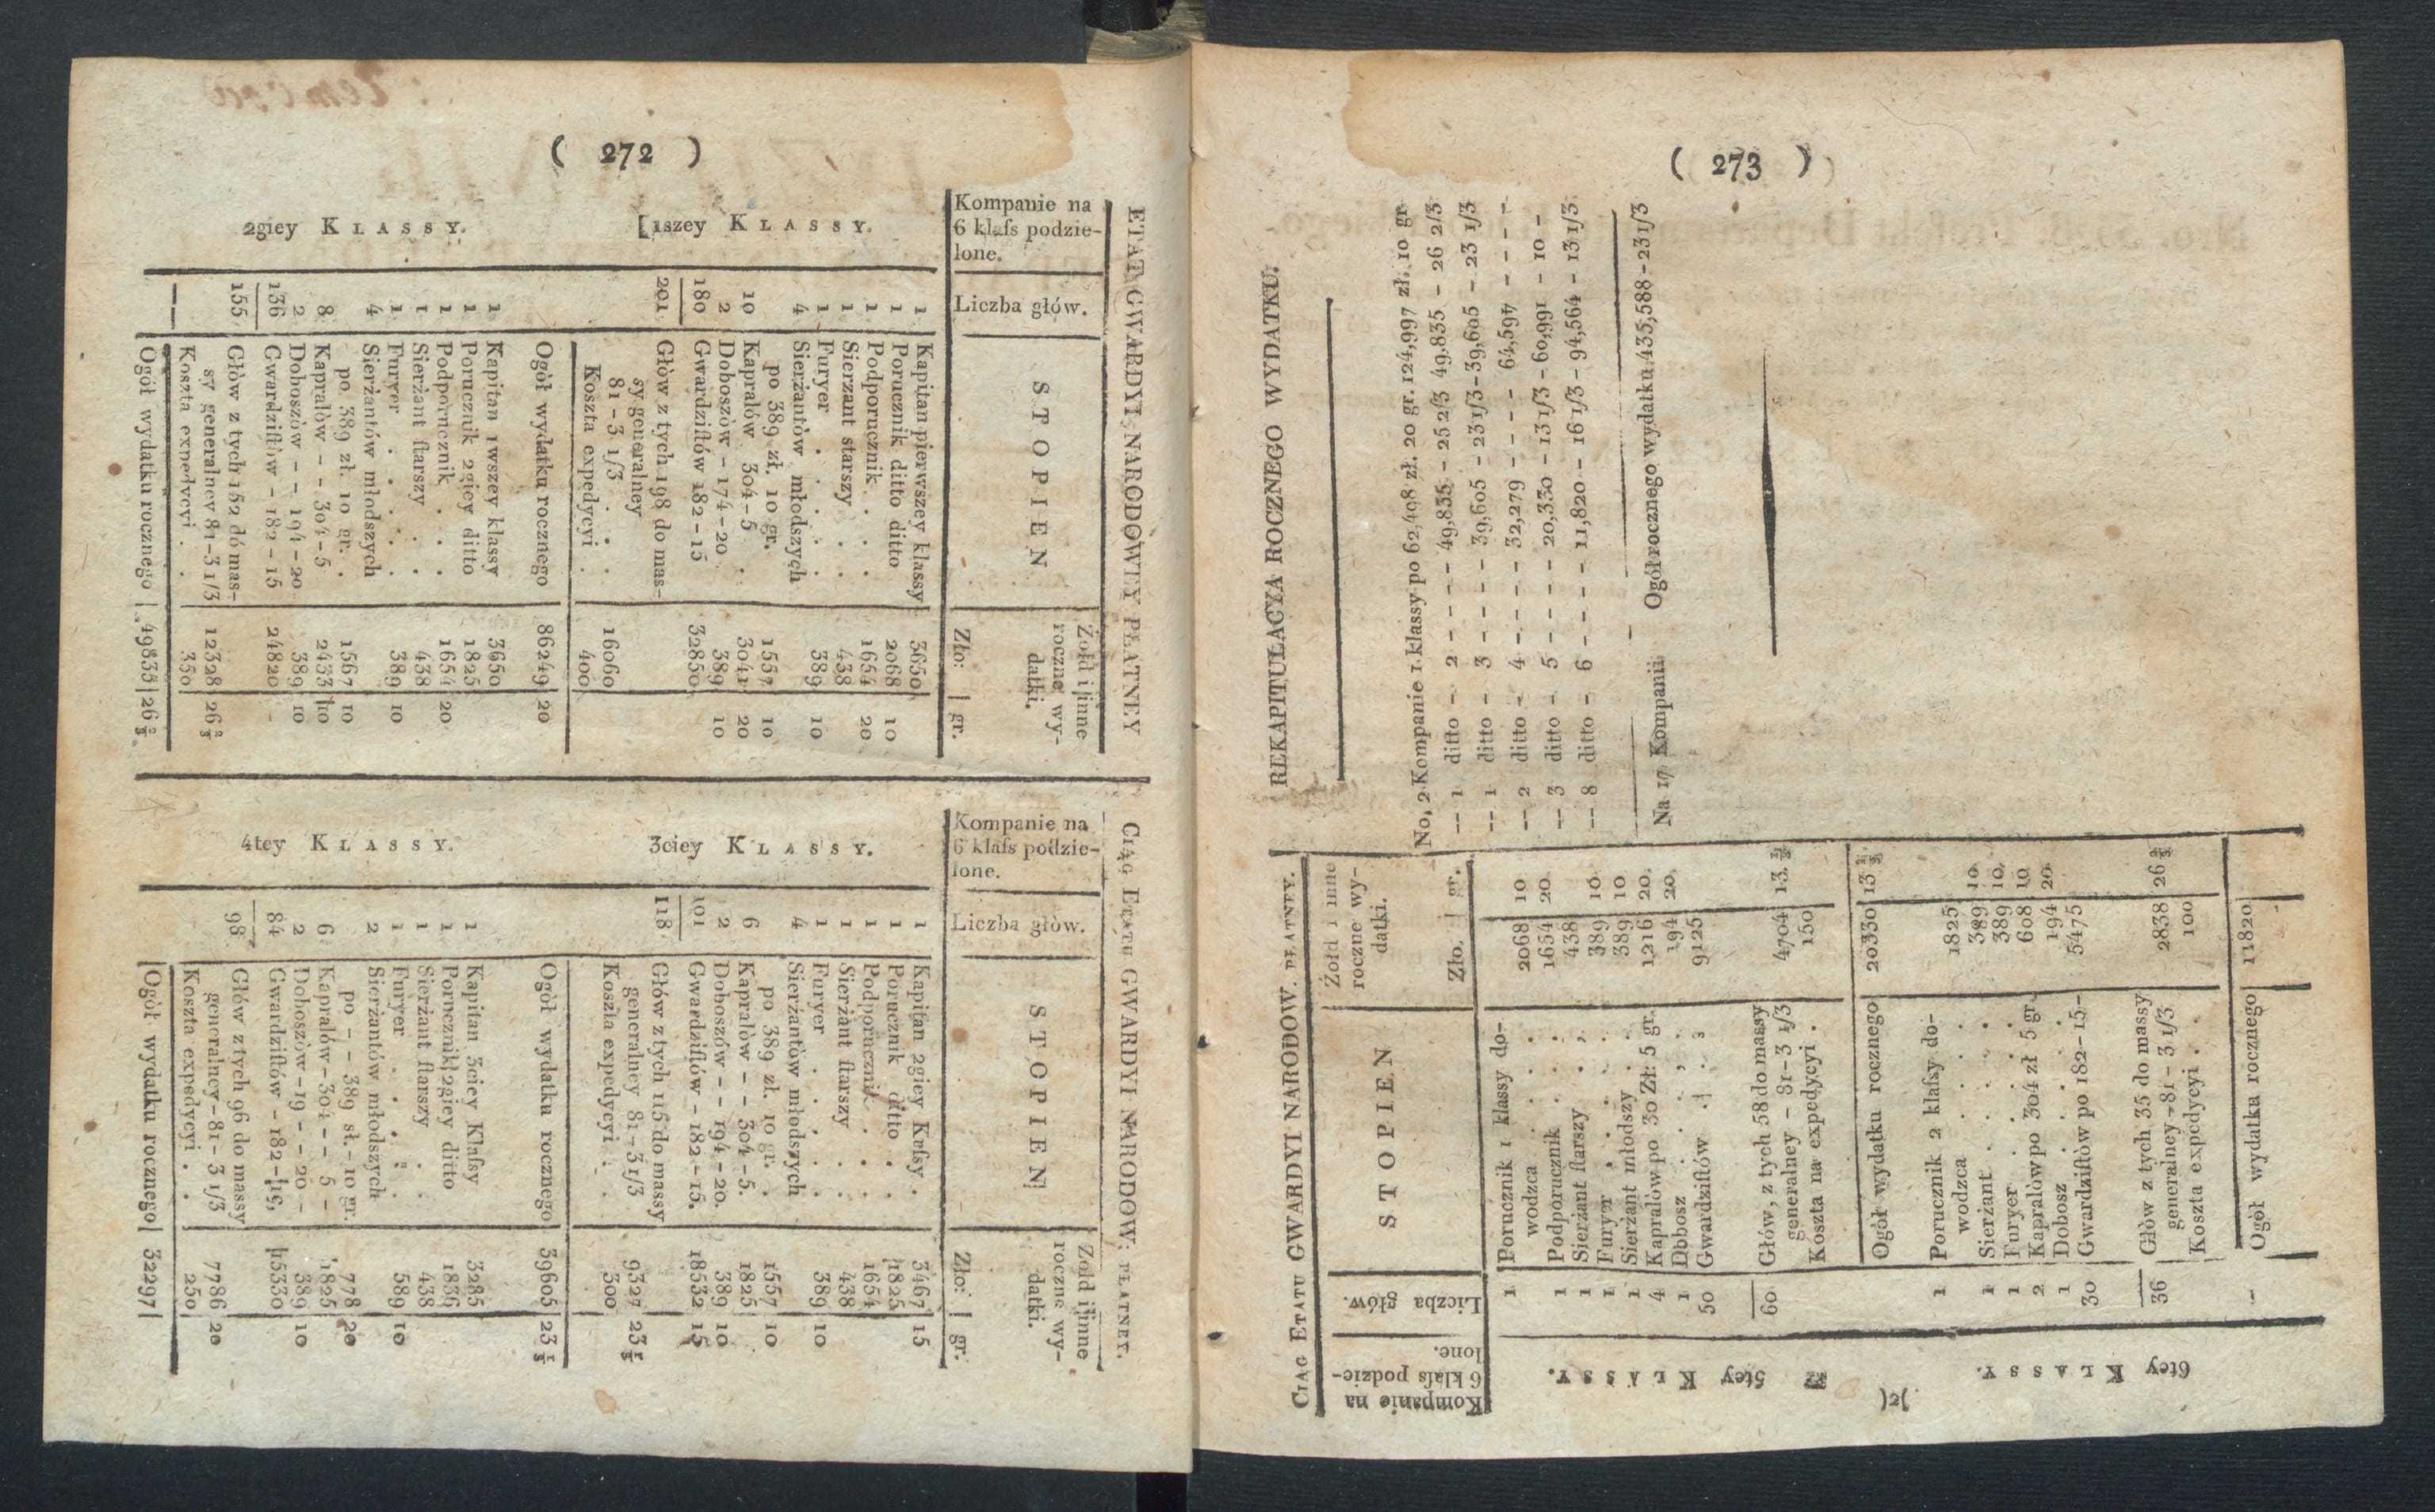 ( 272 )
ETAT GWARDYI NARODOWEY PŁATNEY
Kompanie na
6 klaſs podzie-
lone.
Liczba głów.
STOPIEN
Żołd i inne
roczne wy-
datki.
Zło: | gr.
1szey KLASSY.
1 Kapitan pierwszey klassy 3650
1 Porucznik ditto ditto 2068 10
1 Podporucznik . . 1654 20
1 Sierzant starszy . 438
1 Furyer . . . . 389 10
4 Sierżantów młodszych
po 389 zł. 10 gr. 1557 10
10 Kapralów 304-5 . 3041 20
2 Doboszòw - 174-20 389 10
180 Gwardziſtów 182-15 32850
201 Głòw z tych 198 do mas-
sy generalney
81-3 1/3 . . 16060
Koszta expedycyi . 400
Ogòł wydatku rocznego 86249 20
2giey KLASSY.
1 Kapitan 1wszey klassy 3650
1 Porucznik 2giey ditto 1825
1 Podporucznik . . 1654 20
1 Sierżant ſtarszy . 438
1 Furyer . . . . 389 10
4 Sierżantów młodszych
po 389 zł. 10 gr. . 1567 10
8 Kapralòw - - 304-5 2433 10
2 Doboszòw - - 194-20 389 10
136 Gwardziſtòw - 182-15 24820 -
155 Głòw z tych 152 dó mas-
sy generalney 81-3 1/3 12328 26 2/3
— Koszta expedycyi . . 350
Ogòł wydatku rocznego | 49835 | 26 2/3
CIĄG ETATU GWARDYI NARODOW: PŁATNEY.
Kompanie na
6 klaſs podzie-
lone.
Liczba głów.
STOPIEN
Zołd i inne
roczne wy-
datki.
Zło: | gr.
3ciey KLASSY.
1 Kapitan 2giey Kſsy . 3467 15
1 Porucznik ditto . 1825
1 Podporucznik . . 1654
1 Sierżant ſtarszy . 438
1 Furyer . . . . 389 10
4 Sierżantòw młodszych
po 389 zł. 10 gr. . 1557 10
6 Kapralòw - - 304-5. 1825
2 Doboszów - - 194-20. 389 10
101 Gwardziſtów - 182-15. 18532 15
118 Głów z tych 115 do massy
generalney 81-3 1/3 9327 23 1/3
Koszta expedycyi . . 300
Ogòł wydatku rocznego 39605 23 1/3
4tey KLASSY.
1 Kapitan 3ciey Klaſsy 3285
1 Porucznik 2giey ditto 1836
1 Sierżant ſtarszy . 438
1 Furyer . . . . 589 10
2 Sierżantów młodszych
po - - 389 sł.-10 gr. 778 20
6 Kapralów-304 - - 5 - 1825
2 Doboszòw-19 - - 20 - 389 10
84 Gwardziſtów - 182-15, 15330
98 Głów z tych 96 do massy
generalney-81-3 1/3 7786 20
Koszta expedycyi . . 250
Ogòł wydatku rocznego | 32297 |
( 273 )
CIĄG ETATU GWARDYI NARODOW. PŁATNEY.
Kompanie na
6 klaſs podzie-
lone.
Liczba głów.
STOPIEN
Żołd i inne
roczne wy-
datki.
Zło. | gr.
5tey KLASSY.
1 Porucznik 1 klassy do-
wodzca . . . . 2068 10
1 Podporucznik . . . 1654 20
1 Sierżant ſtarszy . . 438
1 Furyer . . . . 389 10
1 Sierżant młodszy . . 389 10
4 Kapralòw po 30 Zł: 5 gr. 1216 20
1 Dobosz . . . . 194 20
50 Gwardziſtów . . . 9125
60 Głów, z tych 58 do massy
generalney - 81-3 1/3 4704 13 1/3
Koszta na expedycyi . 150
Ogòł wydatku rocznego 20330 13 1/3
6tey KLASSY.
1 Porucznik 2 klaſsy do-
wodzca . . . . 1825
1 Sierżant . . . . 389 10
1 Furyer . . . . 389 10
2 Kapralòw po 304 zł 5 gr. 608 10
1 Dobosz . . . . 194 20
30 Gwardziſtòw po 182-15- 5475
36 Głòw z tych 35 do massy
generalney-81-3 1/3 2838 26 2/3
Koszta expedycyi . . 100
- Ogòł wydatka rocznego 11820 -
REKAPITULACYA ROCZNEGO WYDATKU.
No, 2 Kompanie 1 klassy po 62,498 zł. 20 gr. 124,997 zł. 10 gr
-- 1 ditto - 2 - - - - 49,835 - 25 2/3 49,835 - 26 2/3
-- 1 ditto - 3 - - - - 39,605 - 23 1/3 - 39,605 - 23 1/3
-- 2 ditto - 4 - - - - 32,279 - - - - 64,597 - - - - -
-- 3 ditto - 5 - - - - 20,330 - 13 1/3 - 60,991 - 10 -
-- 8 ditto - 6 - - - - 11,820 - 16 1/3 - 94,564 - 13 1/3
Na 17 Kompanii - Ogół rocznego wydatku 435,588-23 1/3